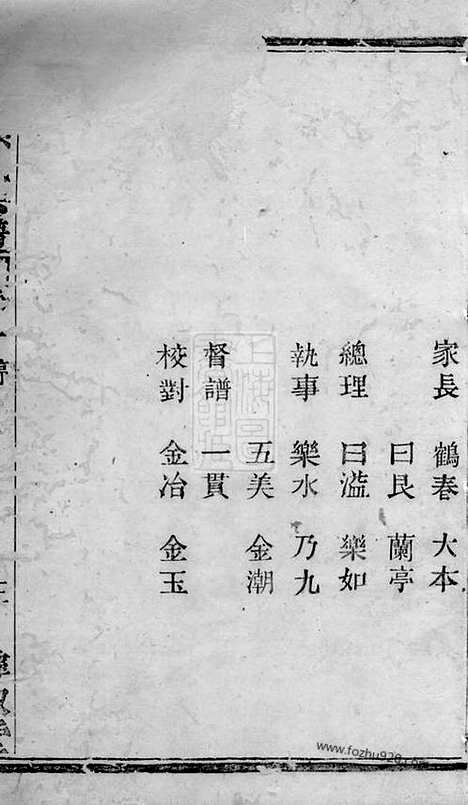 家長 鶴春 大本
曰艮 蘭亭
總理 曰溢 樂如
執事 樂水 乃九
五美 金潮
督譜 一貫
校對 金冶 金玉
www.fozhu920.com